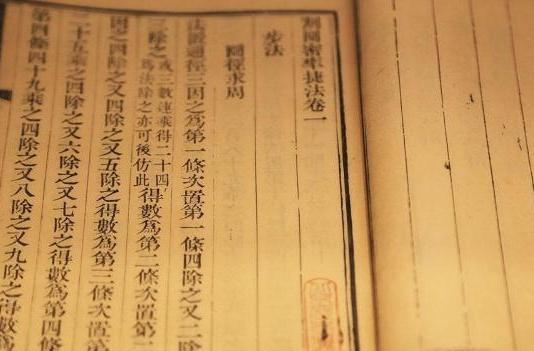 割圜密率捷法卷一
步法
圜徑求周
法置通徑三因之爲第一條次置第一條四除之又二除
三除之或三數連乘得二十四爲法除之亦可後仿此得數爲第二條次置第二
因之四除之又四除之又五除之得數爲第三條次置第
二十五乘之四除之又六除之又七除之得數爲第四條
第四條四十九乘之四除之又八除之又九除之得數